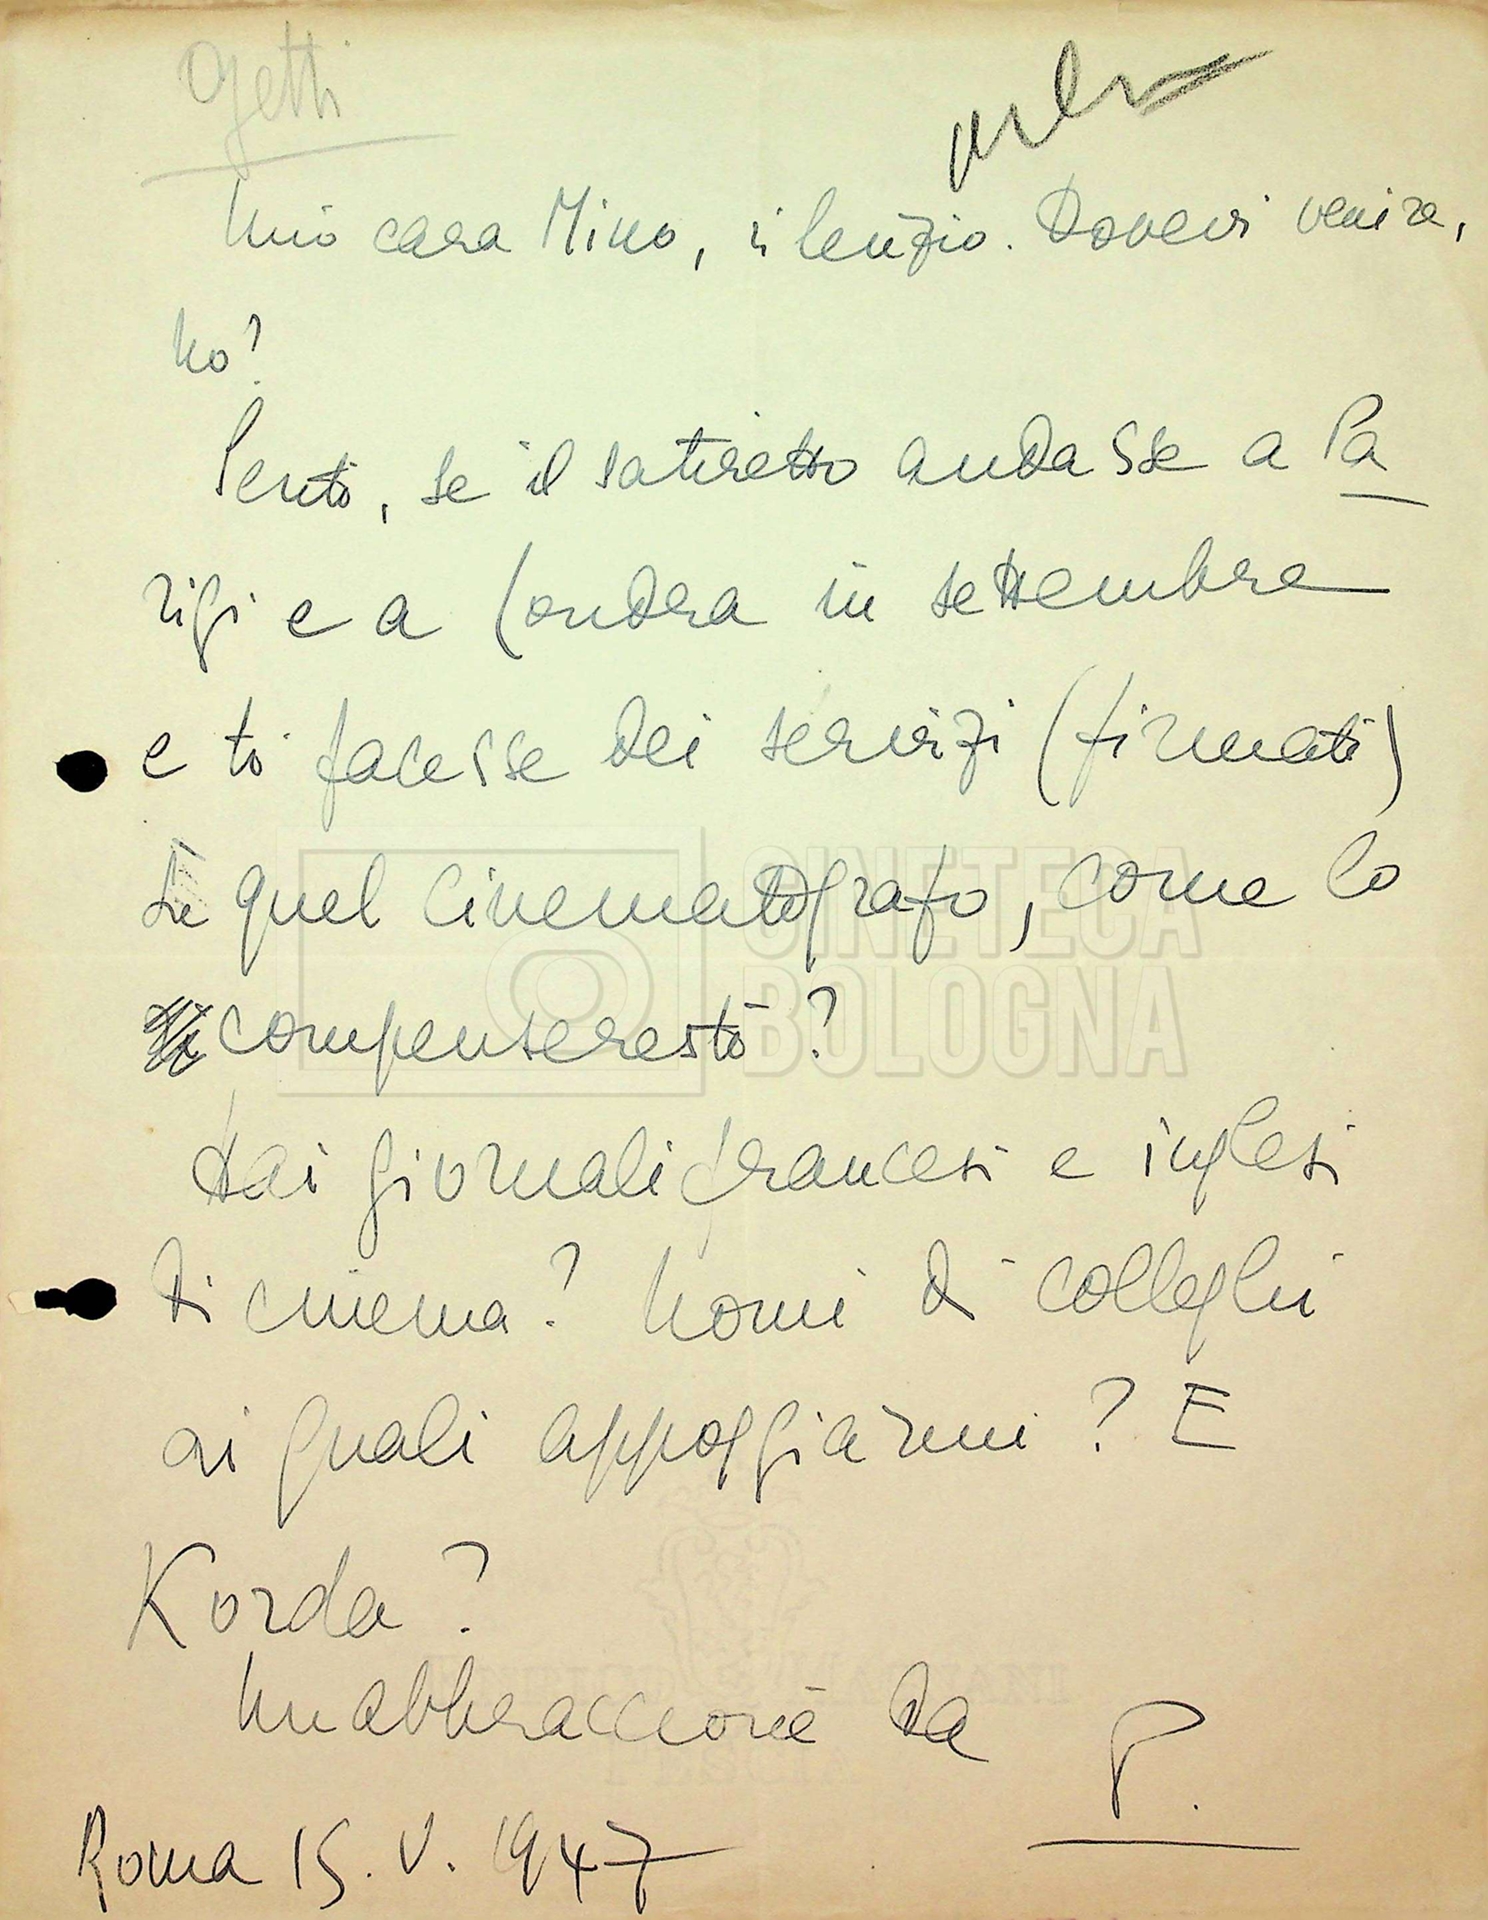 Ojetti
Mio caro Mino, silenzio. Dovevi venire,
no?
Senti, se il satiretto andasse a Pa
rigi e a Londra in settembre
e ti facesse dei servizi (firmati)
di quel cinematografo, come lo
compenseresti?
Hai giornali francesi e inglesi
di cinema? Nomi di colleghi
ai quali appoggiarmi? E
Korda?
Un abbraccione da P.
Roma 15.V.1947
CINETECA
BOLOGNA